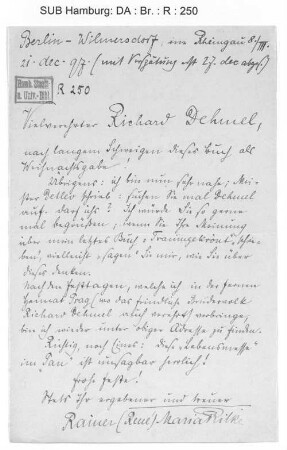 SUB Hamburg: DA : Br. : R : 250
Berlin – Wilmersdorf, im Rheingau 8/III.
21. dec. 97. (mit Verspätung erst 27. dec abges.)
R 250
Vielverehrter Richard Dehmel,
nach langem Schweigen dieses Buch als
Weihnachtsgabe!
Übrigens: ich bin nun sehr nahe; Mei-
ster schrieb: suchen Sie mal Dehmel
auf. darf ich? Ich würde Sie so gerne
mal begrüßen, wenn Sie Ihre Meinung
über mein letztes Buch, „Traumgekrönt“, schrei-
ben, vielleicht „sagen“ Sie mir, wie Sie über
dieses denken.
Nach den Festtagen, welche ich in der fernen
Heimat Prag (wo das feindliche Brudervolk
Richard Dehmel auch verehrt) verbringe,
bin ich wieder unter obiger Adresse zu finden.
Richtig, noch Eines: diese „Lebensmesse“
im „Pan“ ist unsagbar herrlich!
Frohe Feste!
Stets Ihr ergebener und treuer
Rainer (René) Maria Rilke